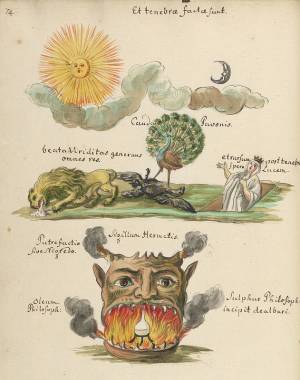 74
Et tenebræ factæ sunt.
Cauda Pavonis.
beata Viriditas generans
omnes res.
et rursum
spero
post tenebras
Lucem.
Sigillum Hermetis.
Putrefactio
sive Nigredo.
Oleum
Philosoph:
Sulphur Philosoph:
incipit dealbari.